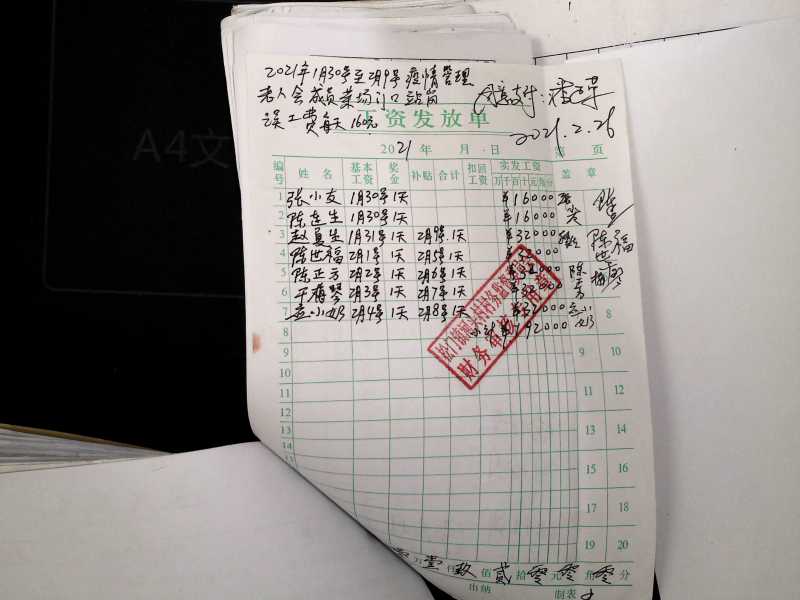 2021年1月30号至2月9号疫情管理
老人会成员菜场门口站岗
误工费每天160元
2021.2.26
工资发放单
A4文
2021年 月 日 第 页
编号 姓名 基本工资 奖金 补贴 合计 扣回工资 实发工资 盖章
万千百十元角分
1 张小友 1月30号1天 ¥16000
2 陈连生 1月30号1天 ¥16000
3 赵夏生 1月31号1天 2月9号1天 ¥32000
4 陈世福 2月1号1天 2月5号1天
5 陈正方 2月2号1天 2月6号1天
6 2月3号1天 2月7号1天
7 2月4号1天 2月8号1天 ¥32000
8 192000 8
9 9 10
10
11 11 12
12
13 13 14
14
15 15 16
17 18
19 20
财务审核
万壹仟玖佰贰拾零元零角零分
出纳 制表